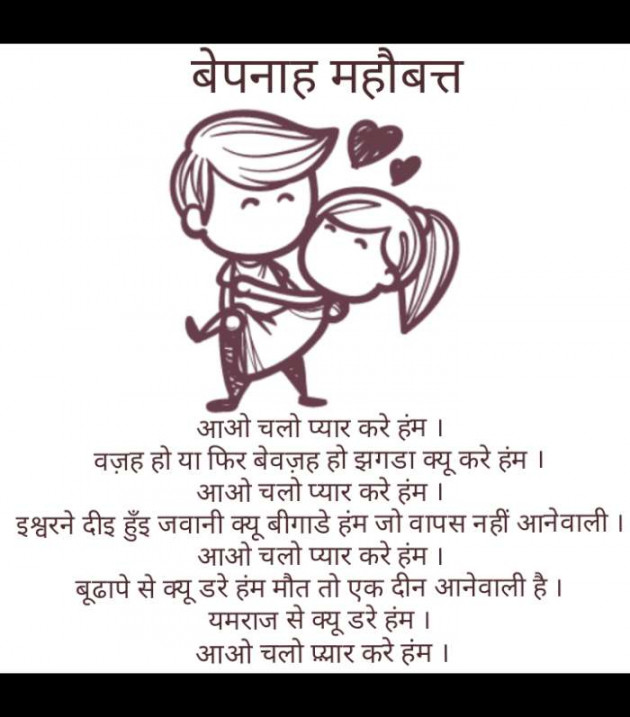 बेपनाह महौबत्त
आओ चलो प्यार करे हंम ।
वज़ह हो या फिर बेवज़ह हो झगडा क्यू करे हंम ।
आओ चलो प्यार करे हंम ।
इश्वरने दीइ हुँइ जवानी क्यू बीगाडे हंम जो वापस नहीं आनेवाली ।
आओ चलो प्यार करे हंम ।
बूढापे से क्यू डरे हंम मौत तो एक दीन आनेवाली है ।
यमराज से क्यू डरे हंम ।
आओ चलो प्य़ार करे हंम ।